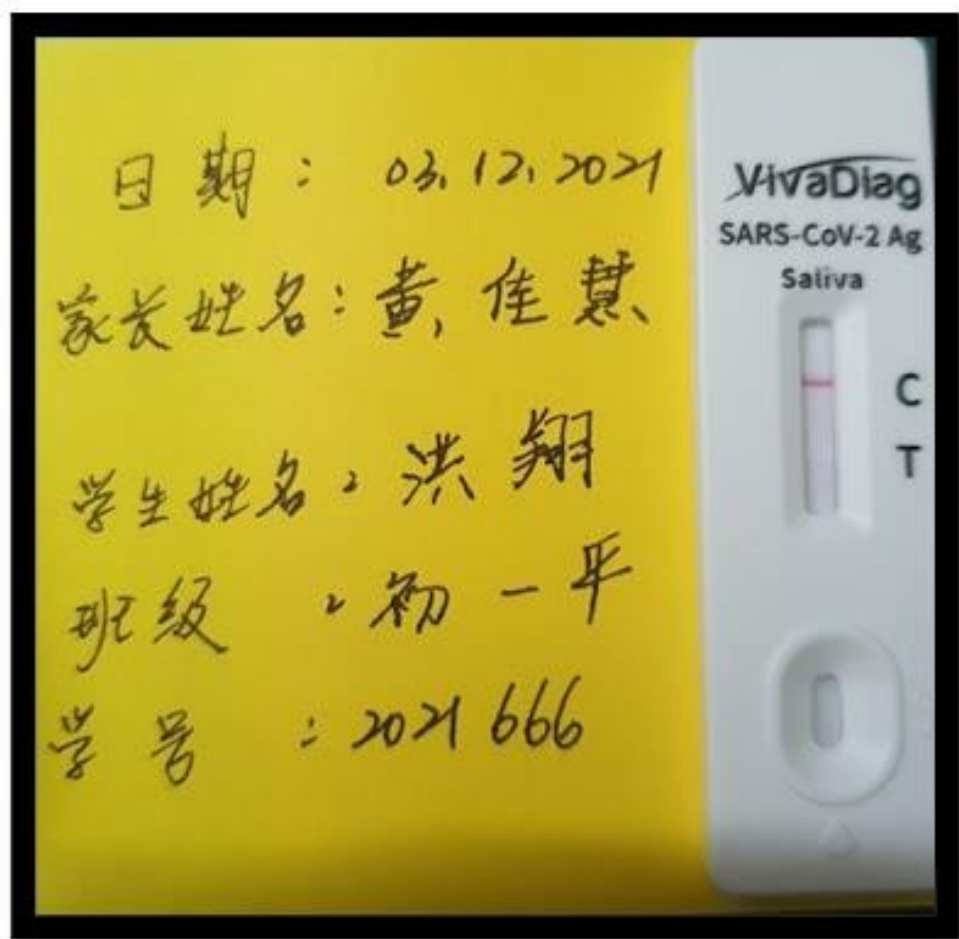 日期：03.12.2021
家长姓名：黄佳慧
学生姓名：洪翔
班级：初一平
学号：2021666
VivaDiag
SARS-CoV-2 Ag
Saliva
C
T